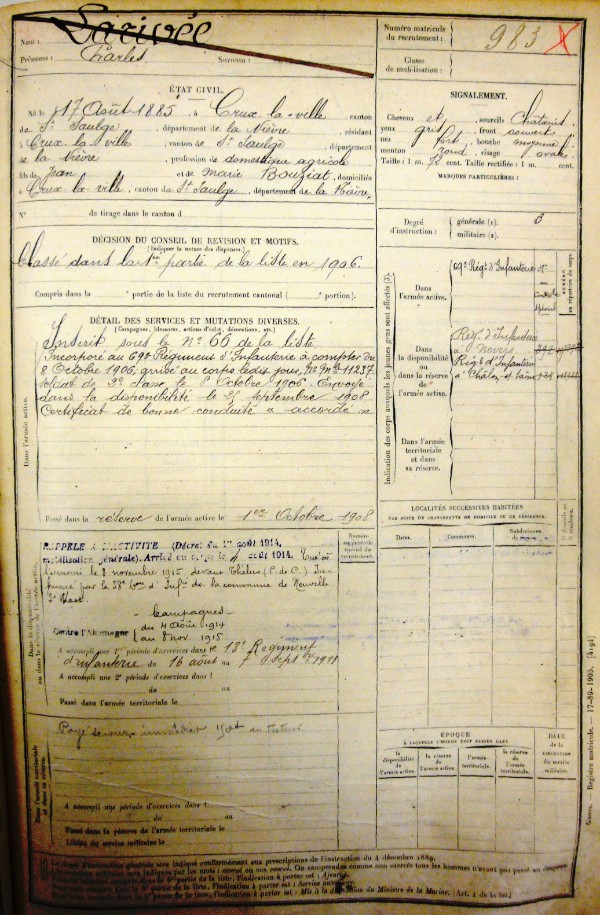 Nom : Larivée
Prénoms : Charles Surnom :
Numéro matricule du recrutement : 983
Classe de mobilisation :
ÉTAT CIVIL.
Né le 17 Août 1885, à Crux-la-ville, canton
de St Saulge, département de la Nièvre, résidant
à Crux la ville, canton de St Saulge, département
de la Nièvre, profession de domestique agricole
fils de Jean et de Marie Bouziat, domiciliés
à Crux-la-ville, canton de St Saulge, département de la Nièvre.
N° de tirage dans le canton d
SIGNALEMENT.
Cheveux et sourcils Châtains
yeux gris, front ouvert
nez fort, bouche moyenne
menton rond, visage ovale
Taille : 1 m. cent. Taille rectifiée : 1 m. cent.
MARQUES PARTICULIÈRES :
Degré d'instruction : générale (1). 3
militaire (2).
DÉCISION DU CONSEIL DE REVISION ET MOTIFS.
(Indiquer la nature des dispenses.)
Classé dans la 1re partie de la liste en 1906.
Compris dans la e partie de la liste du recrutement cantonal ( e portion).
DÉTAIL DES SERVICES ET MUTATIONS DIVERSES.
(Campagnes, blessures, actions d'éclat, décorations, etc.)
Inscrit sous le N° 66 de la liste
Incorporé au 69e Régiment d'Infanterie à compter du
8 Octobre 1906, arrivé au corps le dit jour, No Mle 11237.
soldat de 2e classe le 8 Octobre 1906. Envoyé
dans la disponibilité le septembre 1908
Certificat de bonne conduite « accordé »
Dans l'armée active.
Passé dans la réserve de l'armée active le 1er Octobre 1908
RAPPELÉ À L'ACTIVITÉ (Décret du 1er août 1914,
mobilisation générale). Arrivé au corps le 4 août 1914. Tué à
l'ennemi le 8 novembre 1915 devant Thélus (P. de C.) In-
humé par le d'Infie de la commune de Neuville
St Vaast.
Campagnes
Contre l'Allemagne du 4 Août 1914
au 8 nov. 1915
A accompli une 1re période d'exercices dans le 13e Régiment
d'infanterie du 16 août au 7 Septbre 1911
A accompli une 2e période d'exercices dans l
du au
Passé dans l'armée territoriale le
Payé secours immédiat 150f au tuteur
A accompli une période d'exercices dans l
du au
Passé dans la réserve de l'armée territoriale le
Libéré du service militaire le
Dans la disponibilité ou dans la réserve de l'armée active.
Dans l'armée territoriale et dans sa réserve.
Indication des corps auxquels les jeunes gens sont affectés (3).
Dans l'armée active.
69e Régt d'Infanterie
Dans la disponibilité ou dans la réserve de l'armée active.
Régt d'Infanterie
à Nevers
Régt d'Infanterie
à Châlon s/ Saône
Dans l'armée territoriale et dans sa réserve.
LOCALITÉS SUCCESSIVES HABITÉES
PAR SUITE DE CHANGEMENTS DE DOMICILE OU DE RÉSIDENCE.
Dates. Communes. Subdivisions de région.
ÉPOQUE
À LAQUELLE L'HOMME DOIT PASSER DANS
la disponibilité de l'armée active.
la réserve de l'armée active.
l'armée territoriale.
la réserve de l'armée territoriale.
DATE de la LIBÉRATION du service militaire.
Guerre. — Registre matricule. — 17-89-1905. [4194]